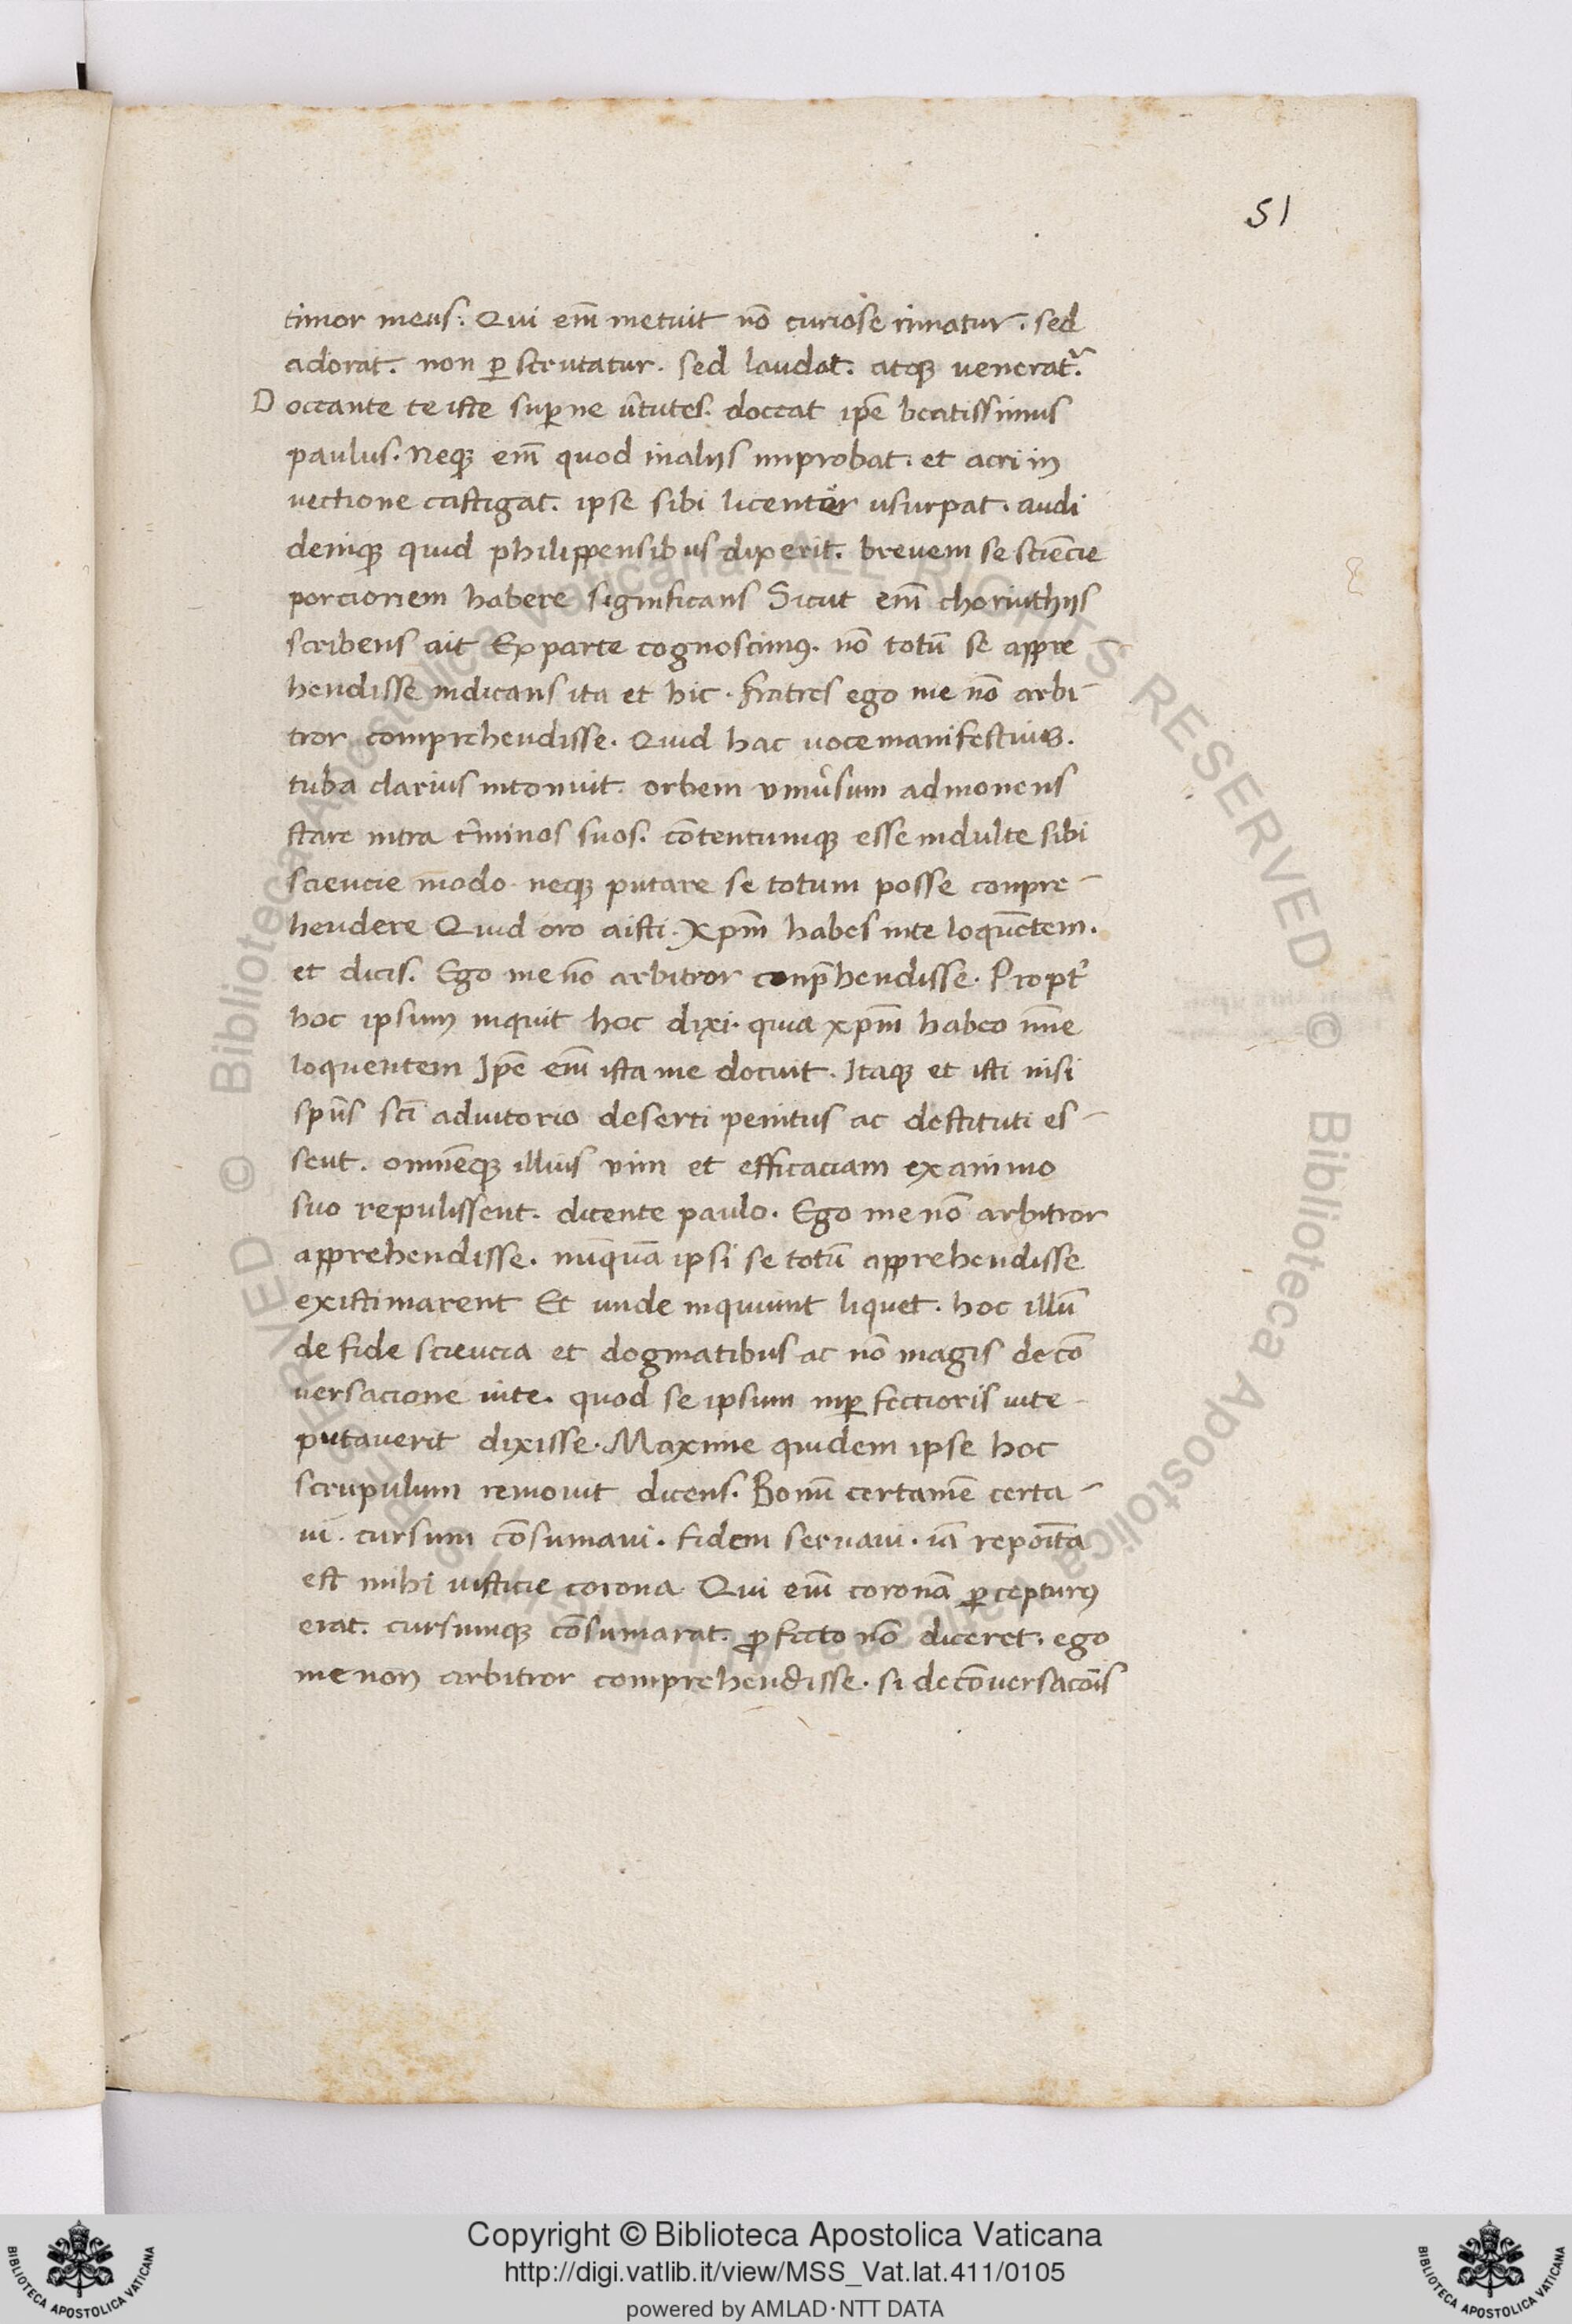 51
timor meus. Qui em̅ metuit no̅ curiose rimatur. sed
adorat. non ꝑ scrutatur. sed laudat. atqꝫ ueneratᷣ.
Doceante te iste suꝑne u̅tutes. doceat ip̅e beatissimus
paulus. Neqꝫ em̅ quod in alijs improbat. et acri in
uectione castigat. ipse sibi licenter usurpat. audi
deniqꝫ quid philippensibus dixerit. breuem se scie̅cie
porcionem habere significans Sicut em̅ chorinthijs
scribens ait Ex parte cognoscimꝰ. no̅ totu̅ se appre
hendisse indicans ita et hic. fratres ego me no̅ arbi
tror comprehendisse. Quid hac uoce manifestius.
tuba clarius intonuit. orbem vniu̓sum admonens
stare intra t̓minos suos. co̅tentumqꝫ esse indulte sibi
sciencie modo. neqꝫ putare se totum posse conpre
hendere Quid oro aisti. Xp̅m habes in te loque̅tem.
et dicis. Ego me no̅ arbitror conp̅hendisse. Propt̓
hoc ipsum inquit hoc dixi. quia xp̅m habeo in me
loquentem Ip̅e em̅ ista me docuit. Itaqꝫ et isti nisi
sp̅us sc̅i adiutorio deserti penitus ac destituti es
sent. omne̅qꝫ illius vim et efficaciam ex animo
suo repulissent. dicente paulo. Ego me no̅ arbitror
apprehendisse. nu̅qua̅ ipsi se totu̅ apprehendisse
existimarent Et unde inquiunt liquet. hoc illu̅
de fide sciencia et dogmatibus ac no̅ magis de co̅
uersacione uite. quod se ipsum inꝑfectioris uite
putauerit dixisse. Maxime quidem ipse hoc
scrupulum remouit dicens. Bonu̅ certame̅ certa
ui. cursum co̅sumaui. fidem seruaui. ia̅ reposita
est mihi iusticie corona Qui em̅ corona̅ ꝑcepturꝰ
erat. cursumqꝫ co̅sumarat. ꝓfecto no̅ diceret. ego
me non arbitror comprehendisse. si de co̅uersaco̅is
Copyright © Biblioteca Apostolica Vaticana
http://digi.vatlib.it/view/MSS_Vat.lat.411/0105
powered by AMLAD·NTT DATA
BIBLIOTECA APOSTOLICA VATICANA
BIBLIOTECA APOSTOLICA VATICANA